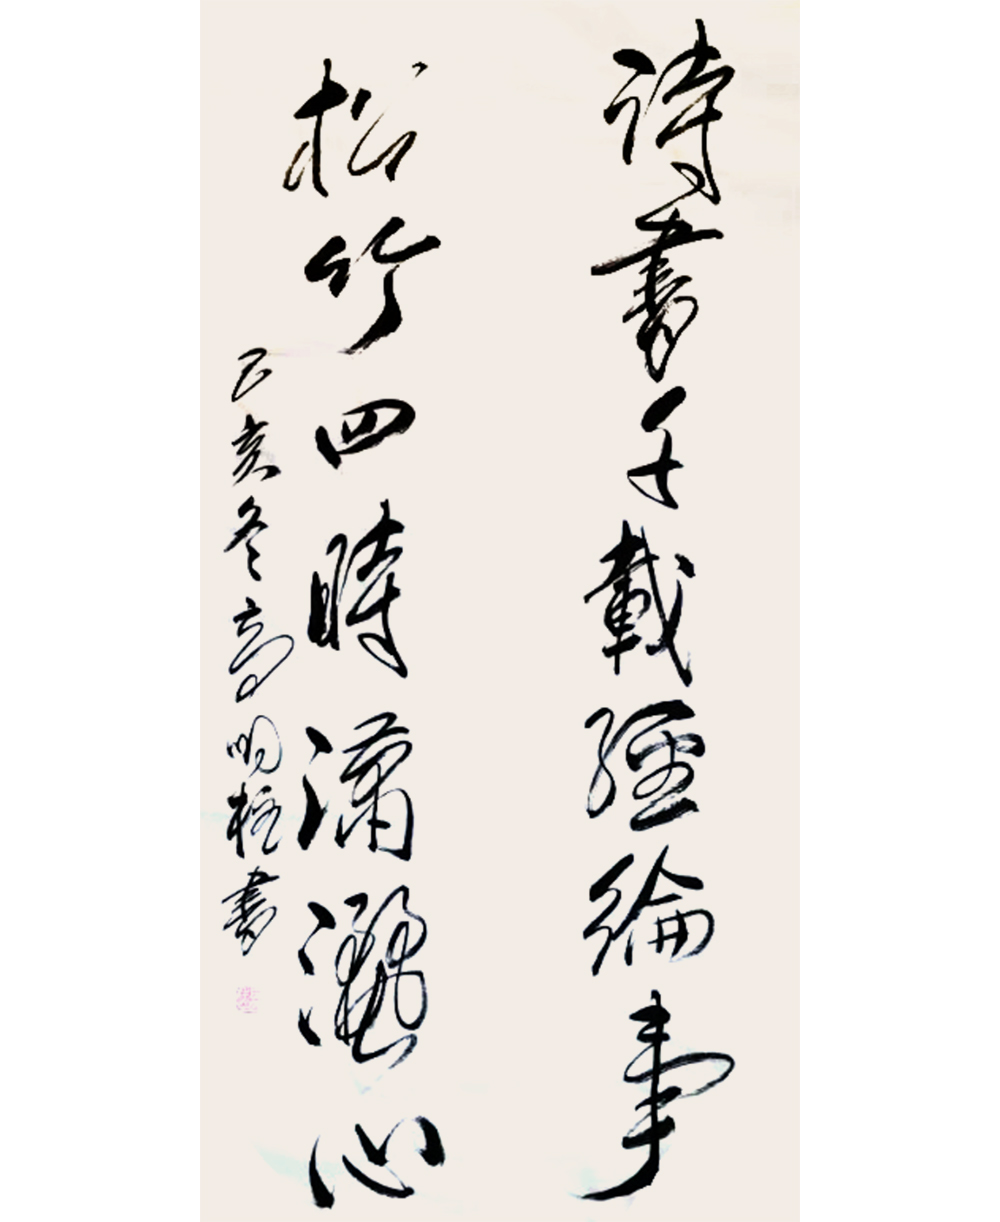 詩書千載經綸事
松竹四時瀟灑心
己亥冬高明柱書